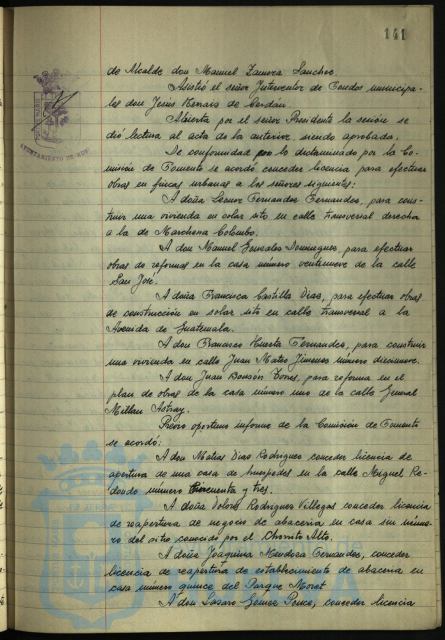 141
de Alcalde don Manuel Zamora Sanchez
Asistió el señor Interventor de Fondos municipa-
les don Jesús Hernaiz de Cerdán.
Abierta por el señor Presidente la sesión se
dió lectura al acta de la anterior, siendo aprobada.
De conformidad por lo dictaminado por la Co-
misión de Fomento se acordó conceder licencia para efectuar
obras en fincas urbanas a los señores siguientes:
A doña Leonor Fernandez Fernandez, para cons-
truir una vivienda en solar sito en calle transversal derecha
a la de Marchena Colombo.
A don Manuel Gonzalez Dominguez, para efectuar
obras de reformas en la casa número veintinueve de la calle
San José.
A doña Francisca Castilla Diaz, para efectuar obras
de construcción en solar sito en calle transversal a la
Avenida de Guatemala.
A don Francisco Huerta Fernandez, para construir
una vivienda en calle Juan Mateo Jimenez número diecinueve.
A don Juan Torres, para reforma en el
plan de obras de la casa número uno de la calle General
Millan Astray.
Previo oportuno informe de la Comisión de Fomento
se acordó:
A don Matias Diaz Rodriguez conceder licencia de
apertura de una casa de huespedes en la calle Miguel Re-
dondo número Cincuenta y tres.
A doña Dolores Rodriguez Villegas conceder licencia
de reapertura de negocio de abacería en casa sin núme-
ro del sitio conocido por el Chorrito Alto.
A doña Joaquina Mendoza Fernandez, conceder
licencia de reapertura de establecimiento de abacería en
casa número quince del Parque Moret
A don Lazaro Gomez Ponce, conceder licencia